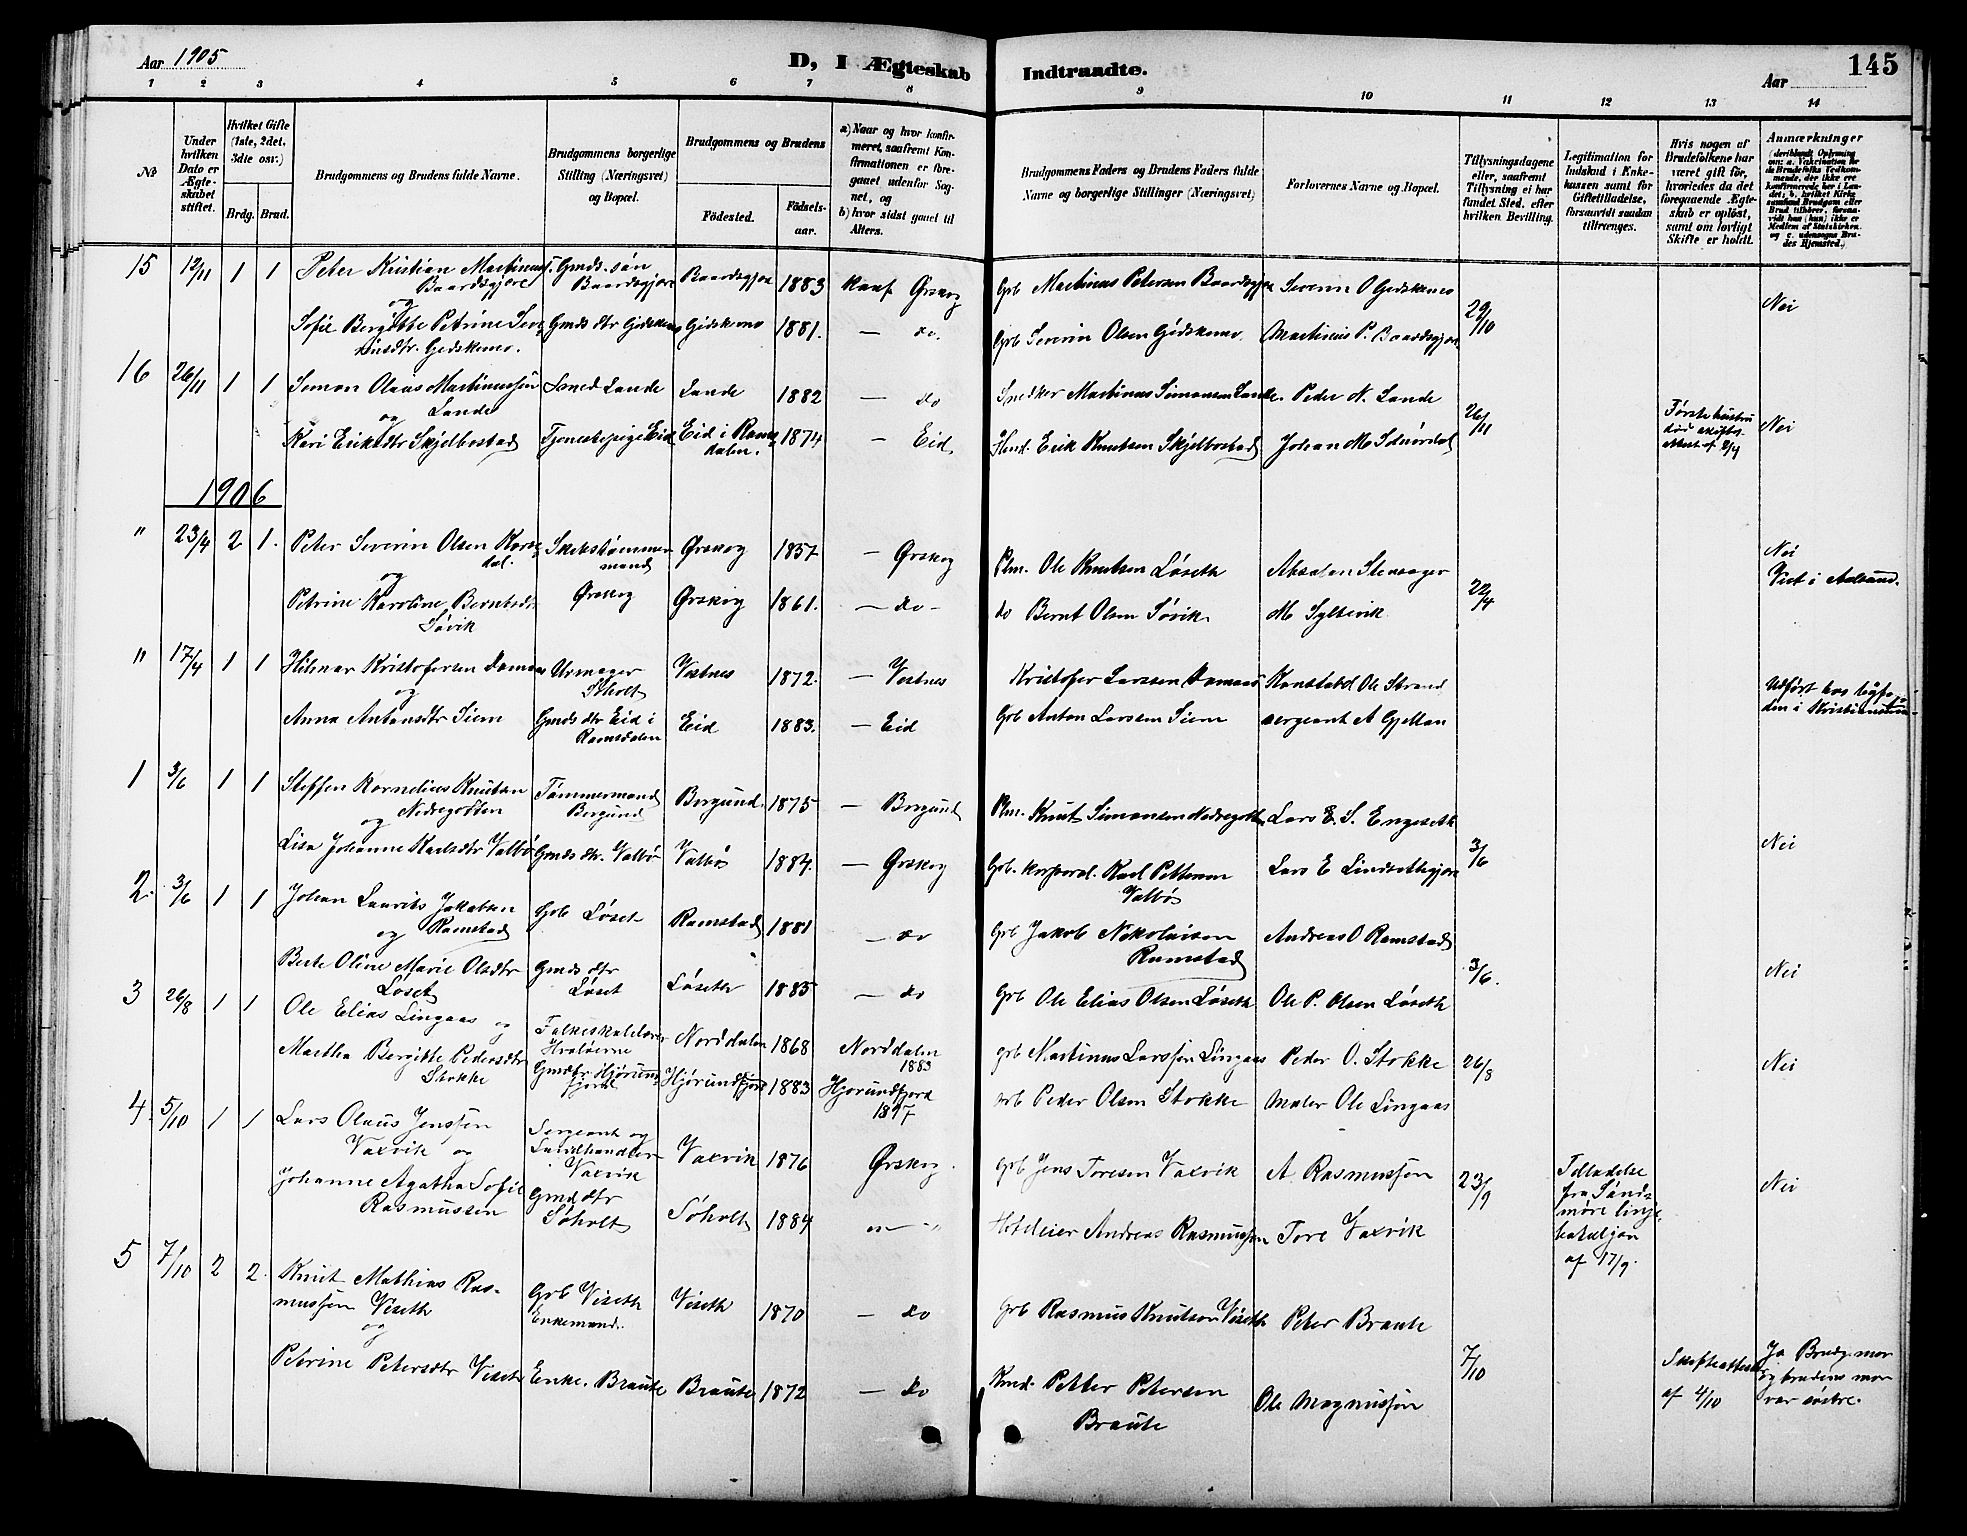 Aar 1905
D, I Ægteskab Indtraadte.
Aar
145
1 2 3 4 5 6 7 8 9 10 11 12 13 14
No
Under hvilken Dato er Ægteskabet stiftet.
Hvilket Gifte (1ste, 2det, 3die osv.)
Brdg. Brud.
Brudgommens og Brudens fulde Navne.
Brudgommens borgerlige Stilling (Næringsvei) og Bopæl.
Brudgommens og Brudens
Födested.
Födsels-aar.
a) Naar og hvor konfirmeret, saafremt Konfirmationen er foregaaet udenfor Sognet, og
b) hvor sidst gaaet til Alters.
Brudgommens Faders og Brudens Faders fulde Navne og borgerlige Stillinger (Næringsvei)
Forlovernes Navne og Bopæl.
Tillysningsdagene eller, saafremt Tillysning ei har fundet Sted, efter hvilken Bevilling.
Legitimation for Indskud i Enkekassen samt for Giftetilladelse, forsaavidt saadan tiltrænges.
Hvis nogen af Brudefolkene har været gift før, hvorledes da det foregaaende Ægteskab er oplöst, samt om lovligt Skifte er holdt.
Anmærkninger
15 12/11 1 1 Peter Kristian Martinuss. Gmds. sön Baardsgjore 1883 Konf Ørskog Grb Martinus Petersen Baardsgjore Severin O Gidskemo Nei
Baardsgjore Baardsgjore
og 29/10
Sofie Bergitte Petrine Seve- Gmds dtr Gidskemo Gidskemo 1881. — do. Grb Severin Olsen Gidskemo. Martinus P. Baardsgjore
rinsdtr. Gidskemo.
16 26/11 1 1 Simon Olaus Martinussen Smed Lande Lande 1882 — do Snedker Martinus Simonsen Lande. Peder N. Lande
og Lande 26/11 Første hustru Nei
Kari Eriksdtr Skjelbostad Tjenestepige Eid Eid i Roms- 1874 — Eid Erik Knutsen Skjelbostad Johan M
dalen. af 2/4
1906
" 23/4 2 1. Peter Severin Olsen Skibstømmer- Ørskog 1857 — Ørskog Plm. Ole Knutsen Løseth Absalon Stensager Nei
dal. mand Viet i Aalesund.
og Ørskog 22/4
Petrine Karoline Berntsdtr Ørskog 1861. — do — do Bernt Olsen Søvik M Syltevik
Søvik
" 17/4 1 1 Hilmar Kristofersen Urmager Vestnes 1872. — Vestnes Kristofer Larssen Konstabel Ole Strand
og Søholt Udført hos
Anna Antonsdtr Siem Gmds dtr Eid i Eid 1883. — Eid Grb Anton Larssen Siem sergeant A Gjellan den i Kristiansund.
Romsdalen
1 3/6 1 1 Steffen Kornelius Knutsen Tømmermand Borgund 1875 — Borgund Plm. Knut Simonsen Nedregotten Lars E. S. Engeseth
og Nedregotten Borgund Nei
Lisa Johanne Karlsdtr Valbø Gmds dtr. Valbø Valbø 1884. — Ørskog Grb. korporal. Karl Pettersen Lars E Lindsetbgjore 3/6
Valbø
2. 3/6 1 1 Johan Laurits Jakobsen Grb Løset Ramstad 1881 — do Grb Jakob Nikolaisen Andreas O Ramstad
og Ramstad Ramstad 3/6. Nei
Berte Oline Marie Olsdtr Gmds dtr Løseth 1885 — do Grb Ole Elias Olsen Løseth Ole P. Olsen Løseth
Løset Løset
3 26/8 1 1 Ole Elias Lingaas og Folkeskolelærer Norddalen 1868 Norddalen grb Martinus Larssen Lingaas Peder O. Stokke 26/8 Nei
Hvaløerne 1883
Martha Bergitte Pedersdtr Gmdtr Hjørund- Hjørundfjord 1883 Hjørundfjord grb Peder Olsen Stokke Maler Ole Lingaas
Stokke fjord 1897
4. 5/10 1 1 Lars Olaus Jenssen Sergeant og Vaxvik 1876 Ørskog grb Jens Toresen Vaxvik A. Rasmussen 23/9 Tilladelse Nei
Vaxvik og Landhandler fra Sønd-
Vaxvik møre linje-
Johanne Agatha Sofie Gmd dtr Søholt 1884 — " Hoteleier Andreas Rasmussen Tore Vaxvik bataljon
Rasmussen Søholt af 17/9.
5 7/10 2 2. Knut Mathias Ras- Grb Viseth Viseth 1870 — do Grb Rasmus Knutson Viseth Peter Braute
mussen Viseth Enkemand.
og 7/10 Skifteattest Ja Brudg. mor
Petrine Petersdtr Viset Enke. Braute Braute 1872 — do Petter Petersen Ole Magnussen af 4/10 og brudens mor
Braute var søstre.